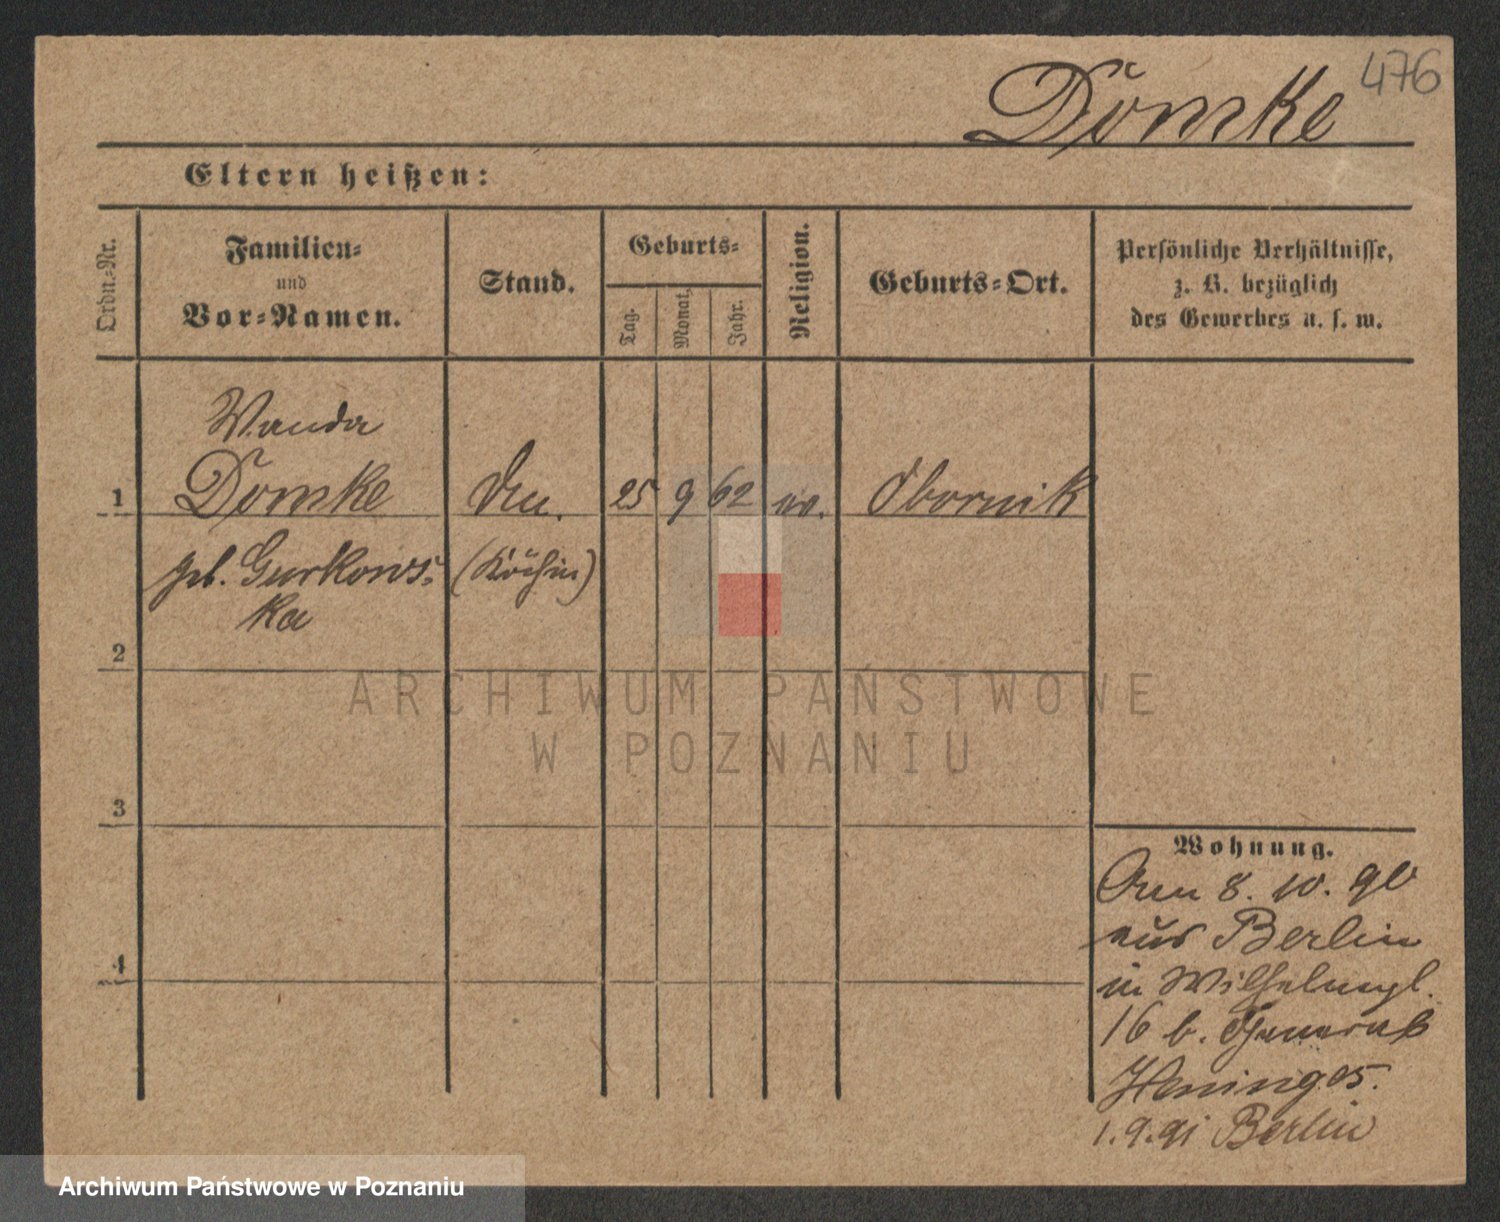 476
Domke
Eltern heißen:
Ordn.-Nr.
Familien-
und
Vor-Namen.
Stand.
Geburts-
Tag.
Monat.
Jahr.
Religion.
Geburts-Ort.
Persönliche Verhältnisse,
z. B. bezüglich
des Gewerbes u. s. w.
Wanda
1 Domke 25 9 62 Obornik
geb. Gurkows-
ka
(Köchin)
2
3
4
Wohnung.
8. 10. 90
aus Berlin
in Wilhelmpl.
16 b. General
1.9.91 Berlin
ARCHIWUM PAŃSTWOWE
W POZNANIU
Archiwum Państwowe w Poznaniu